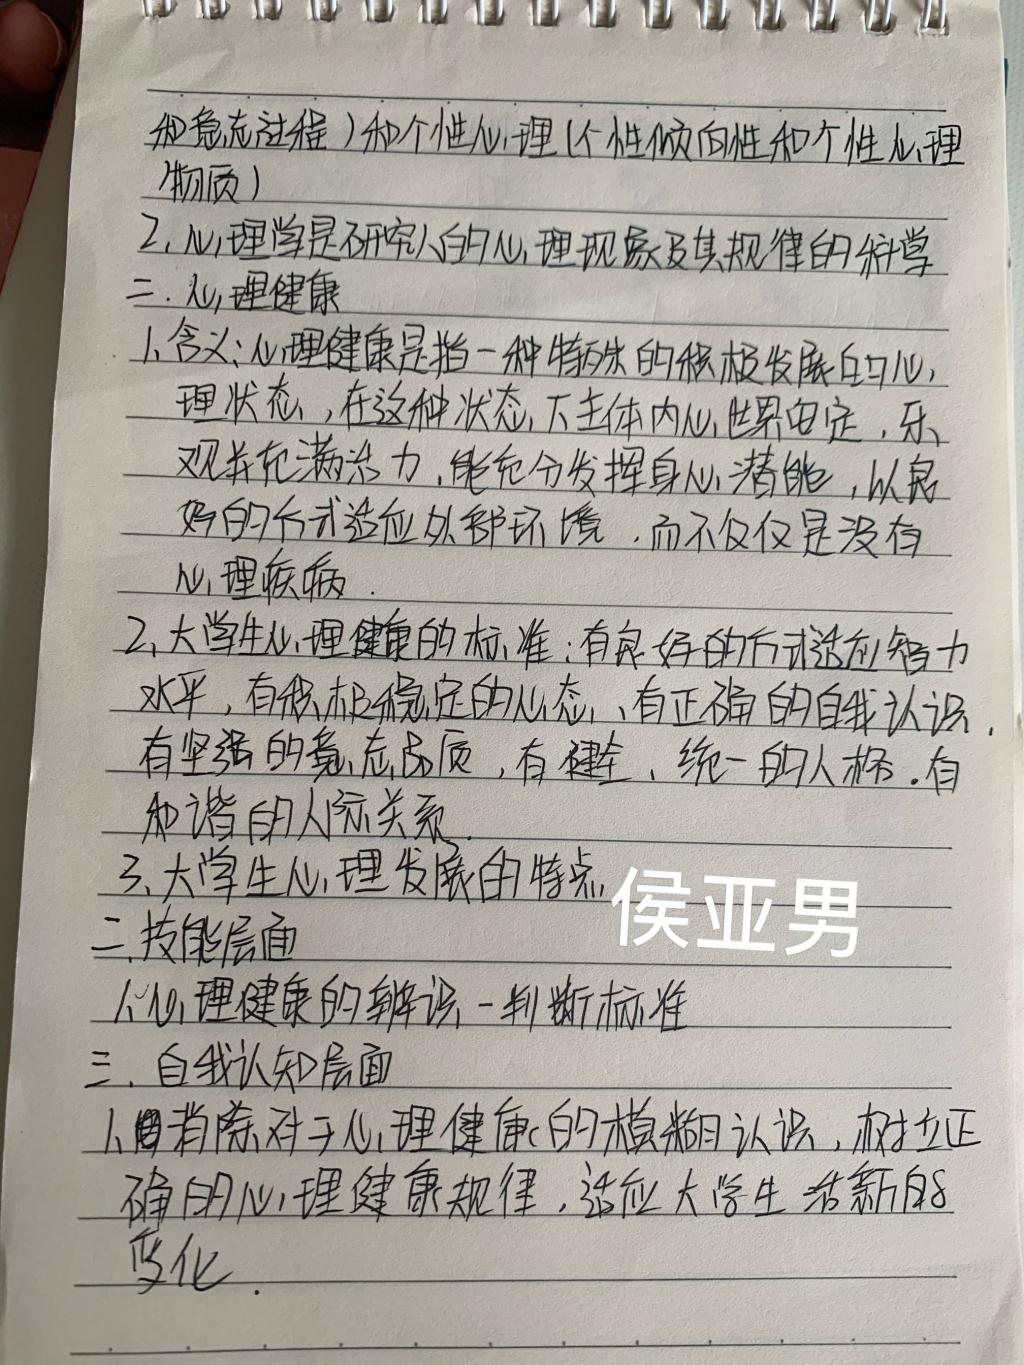 和意志过程)和个性心理(个性倾向性和个性心理
物质)
2、心理学是研究人的心理现象及其规律的科学
二、心理健康
1、含义:心理健康是指一种特殊的积极发展的心
理状态,在这种状态下主体内心世界安定,乐
观并充满活力,能充分发挥身心潜能,以良
好的方式适应外部环境,而不仅仅是没有
心理疾病.
2、大学生心理健康的标准:有良好的方式适应智力
水平,有积极稳定的心态、有正确的自我认识,
有坚强的意志品质,有健全、统一的人格.有
和谐的人际关系.
3、大学生心理发展的特点
侯亚男
二、技能层面
1、心理健康的辨识-判断标准
三、自我认知层面
1、消除对于心理健康的模糊认识,树立正
确的心理健康规律,适应大学生活新的
变化.